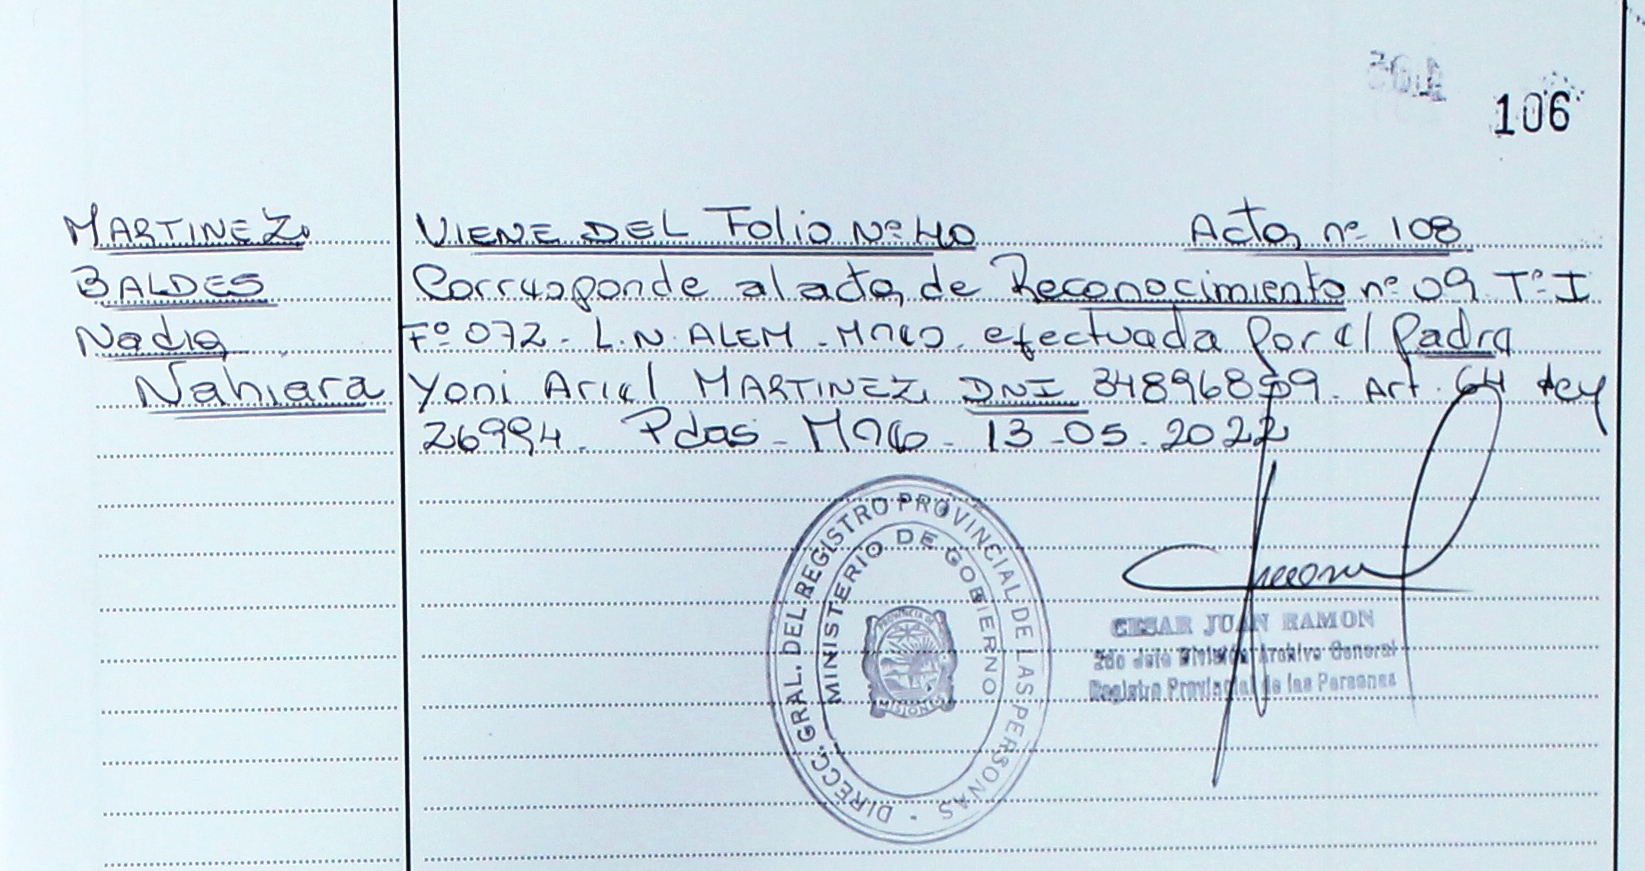 106
MARTINEZ
BALDES
Nadia
Nahiara
VIENE DEL Folio Nº 40 Acta nº 108
Corresponde al acta de Reconocimiento nº 09 Tº I
Fº 072 - L.N. ALEM - Mnes efectuada por el padre
Yoni Ariel MARTINEZ DNI 34896859. Art. 64 Ley
26994. Pdas - Mnes - 13-05-2022
DIRECC. GRAL. DEL REGISTRO PROVINCIAL DE LAS PERSONAS -
MINISTERIO DE GOBIERNO
PROVINCIA DE
MISIONES
CESAR JUAN RAMON
2do Jefe División Archivo General
Registro Provincial de las Personas